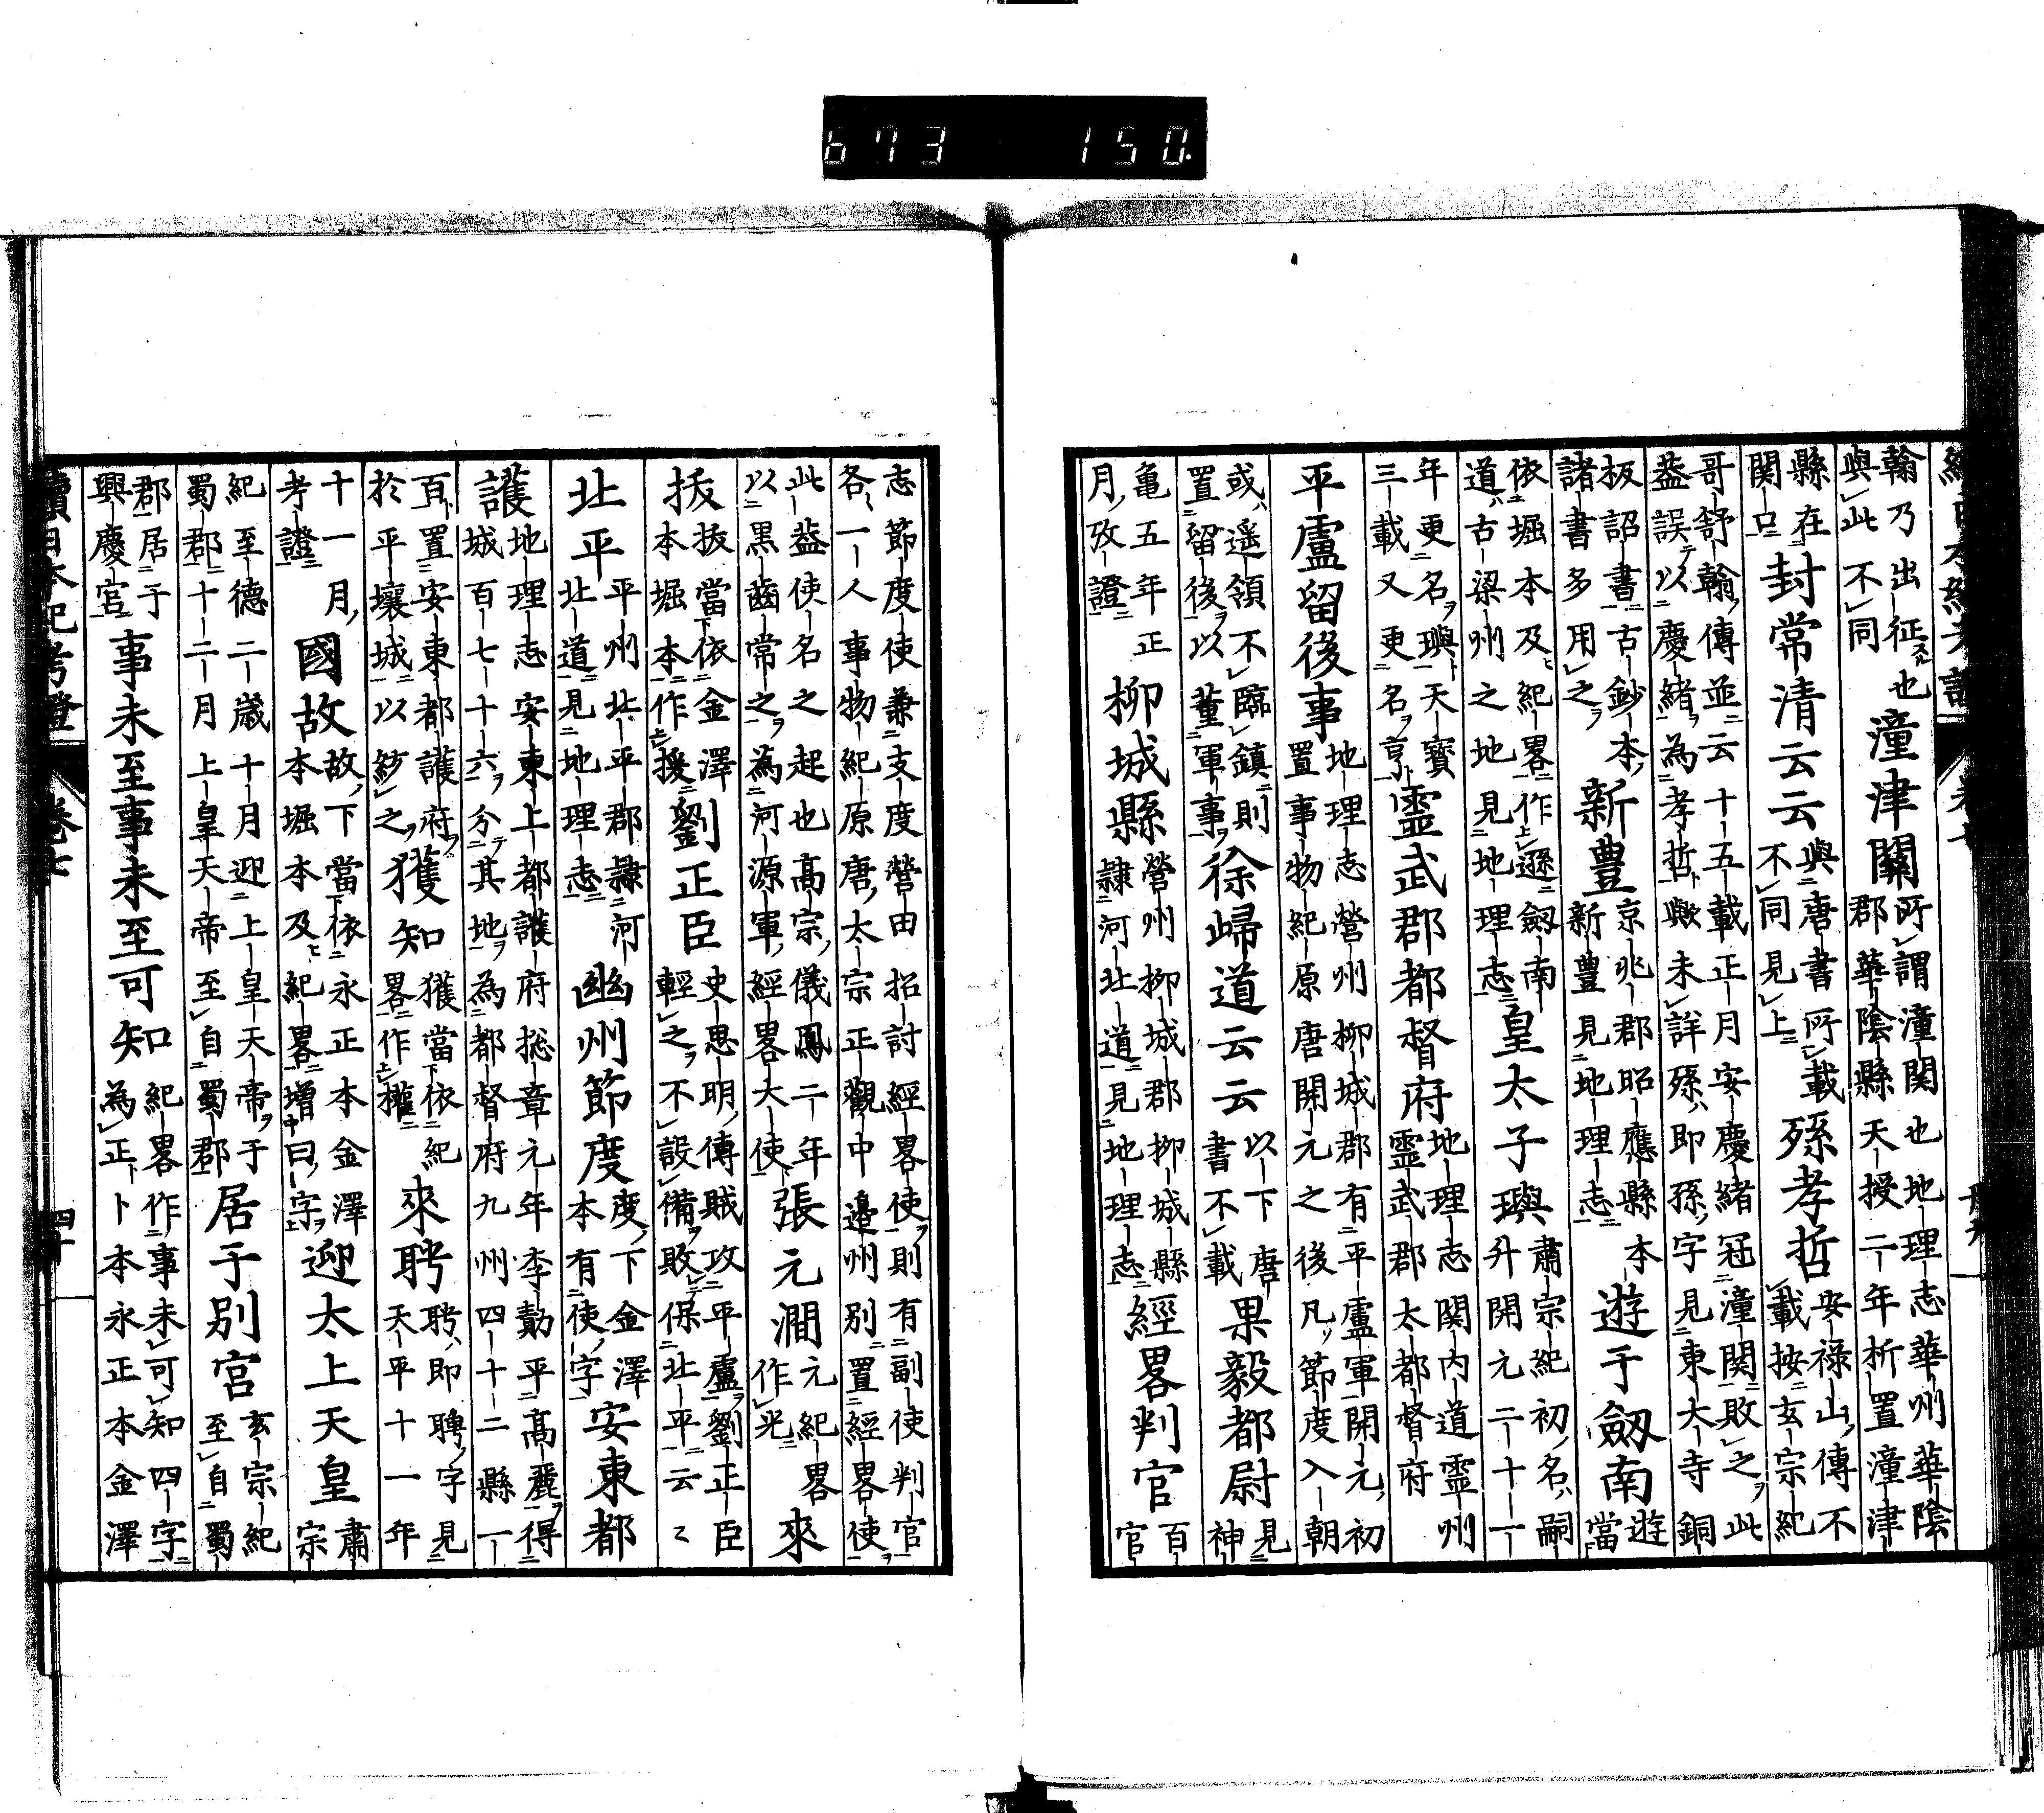 673 150.
翰乃出征死也
與此不同
潼津關
所謂潼関也地理志華州華陰
郡華陰縣天授二年析置潼津
縣在
関口
封常清云云
與唐書所載
不同見上
孫孝哲
安禄山傳不
載按玄宗紀
哥舒翰傳並云十五載正月安慶緒冠潼関敗之此
葢誤以慶緒為孝哲歟未詳孫即孫字見東大寺銅
板詔書古鈔本
諸書多用之
新豊
京兆郡昭應縣本
新豊見地理志
遊于劔南
遊
當
依堀本及紀畧作遜劔南
道古梁州之地見地理志
皇太子璵
肅宗紀初名嗣
升開元二十一
年更名璵天寳
三載又更名亨
靈武郡都督府
地理志関内道靈州
靈武郡太都督府
平盧留後事
地理志營州柳城郡有平盧軍開元初
置事物紀原唐開元之後凡節度入朝
或遥領不臨鎮則
置留後以董軍事
徐歸道云云
以下唐
書不載
果毅都尉
見
神
亀五年正
月攷證
柳城縣
營州柳城郡柳城縣
隷河北道見地理志
經畧判官
百
官
志節度使兼支度營田招討經畧使則有副使判官
各一人事物紀原唐太宗正觀中邉州别置經畧使
此葢使名之起也髙宗儀鳳二年
以黒齒常之為河源軍經畧大使
張元澗
元紀畧
作光
來
拔
抜當依金澤
本堀本作援
劉正臣
史思明傳賊攻平盧劉正臣
輕之不設備敗保北平云々
北平
平州北平郡隷河
北道見地理志
幽州節度
度下金澤
本有使字
安東都
護
地理志安東上都護府総章元年李勣平髙麗得
城百七十六分其地為都督府九州四十二縣一
百置安東都護府
於平壤城以紗之
獲知
獲當依紀
畧作權
來聘
聘即聘字見
天平十一年
十一月
考證
國故
故下當依永正本金澤
本堀本及紀畧増曰字
迎太上天皇
肅
宗
紀至德二歳十月迎上皇天帝于
蜀郡十二月上皇天帝至自蜀郡
居于别宮
玄宗紀
至自蜀
郡居于
興慶宮
事未至事未至可知
紀畧作事未可知四字
為正卜本永正本金澤
續日本紀考證
卷七
四十